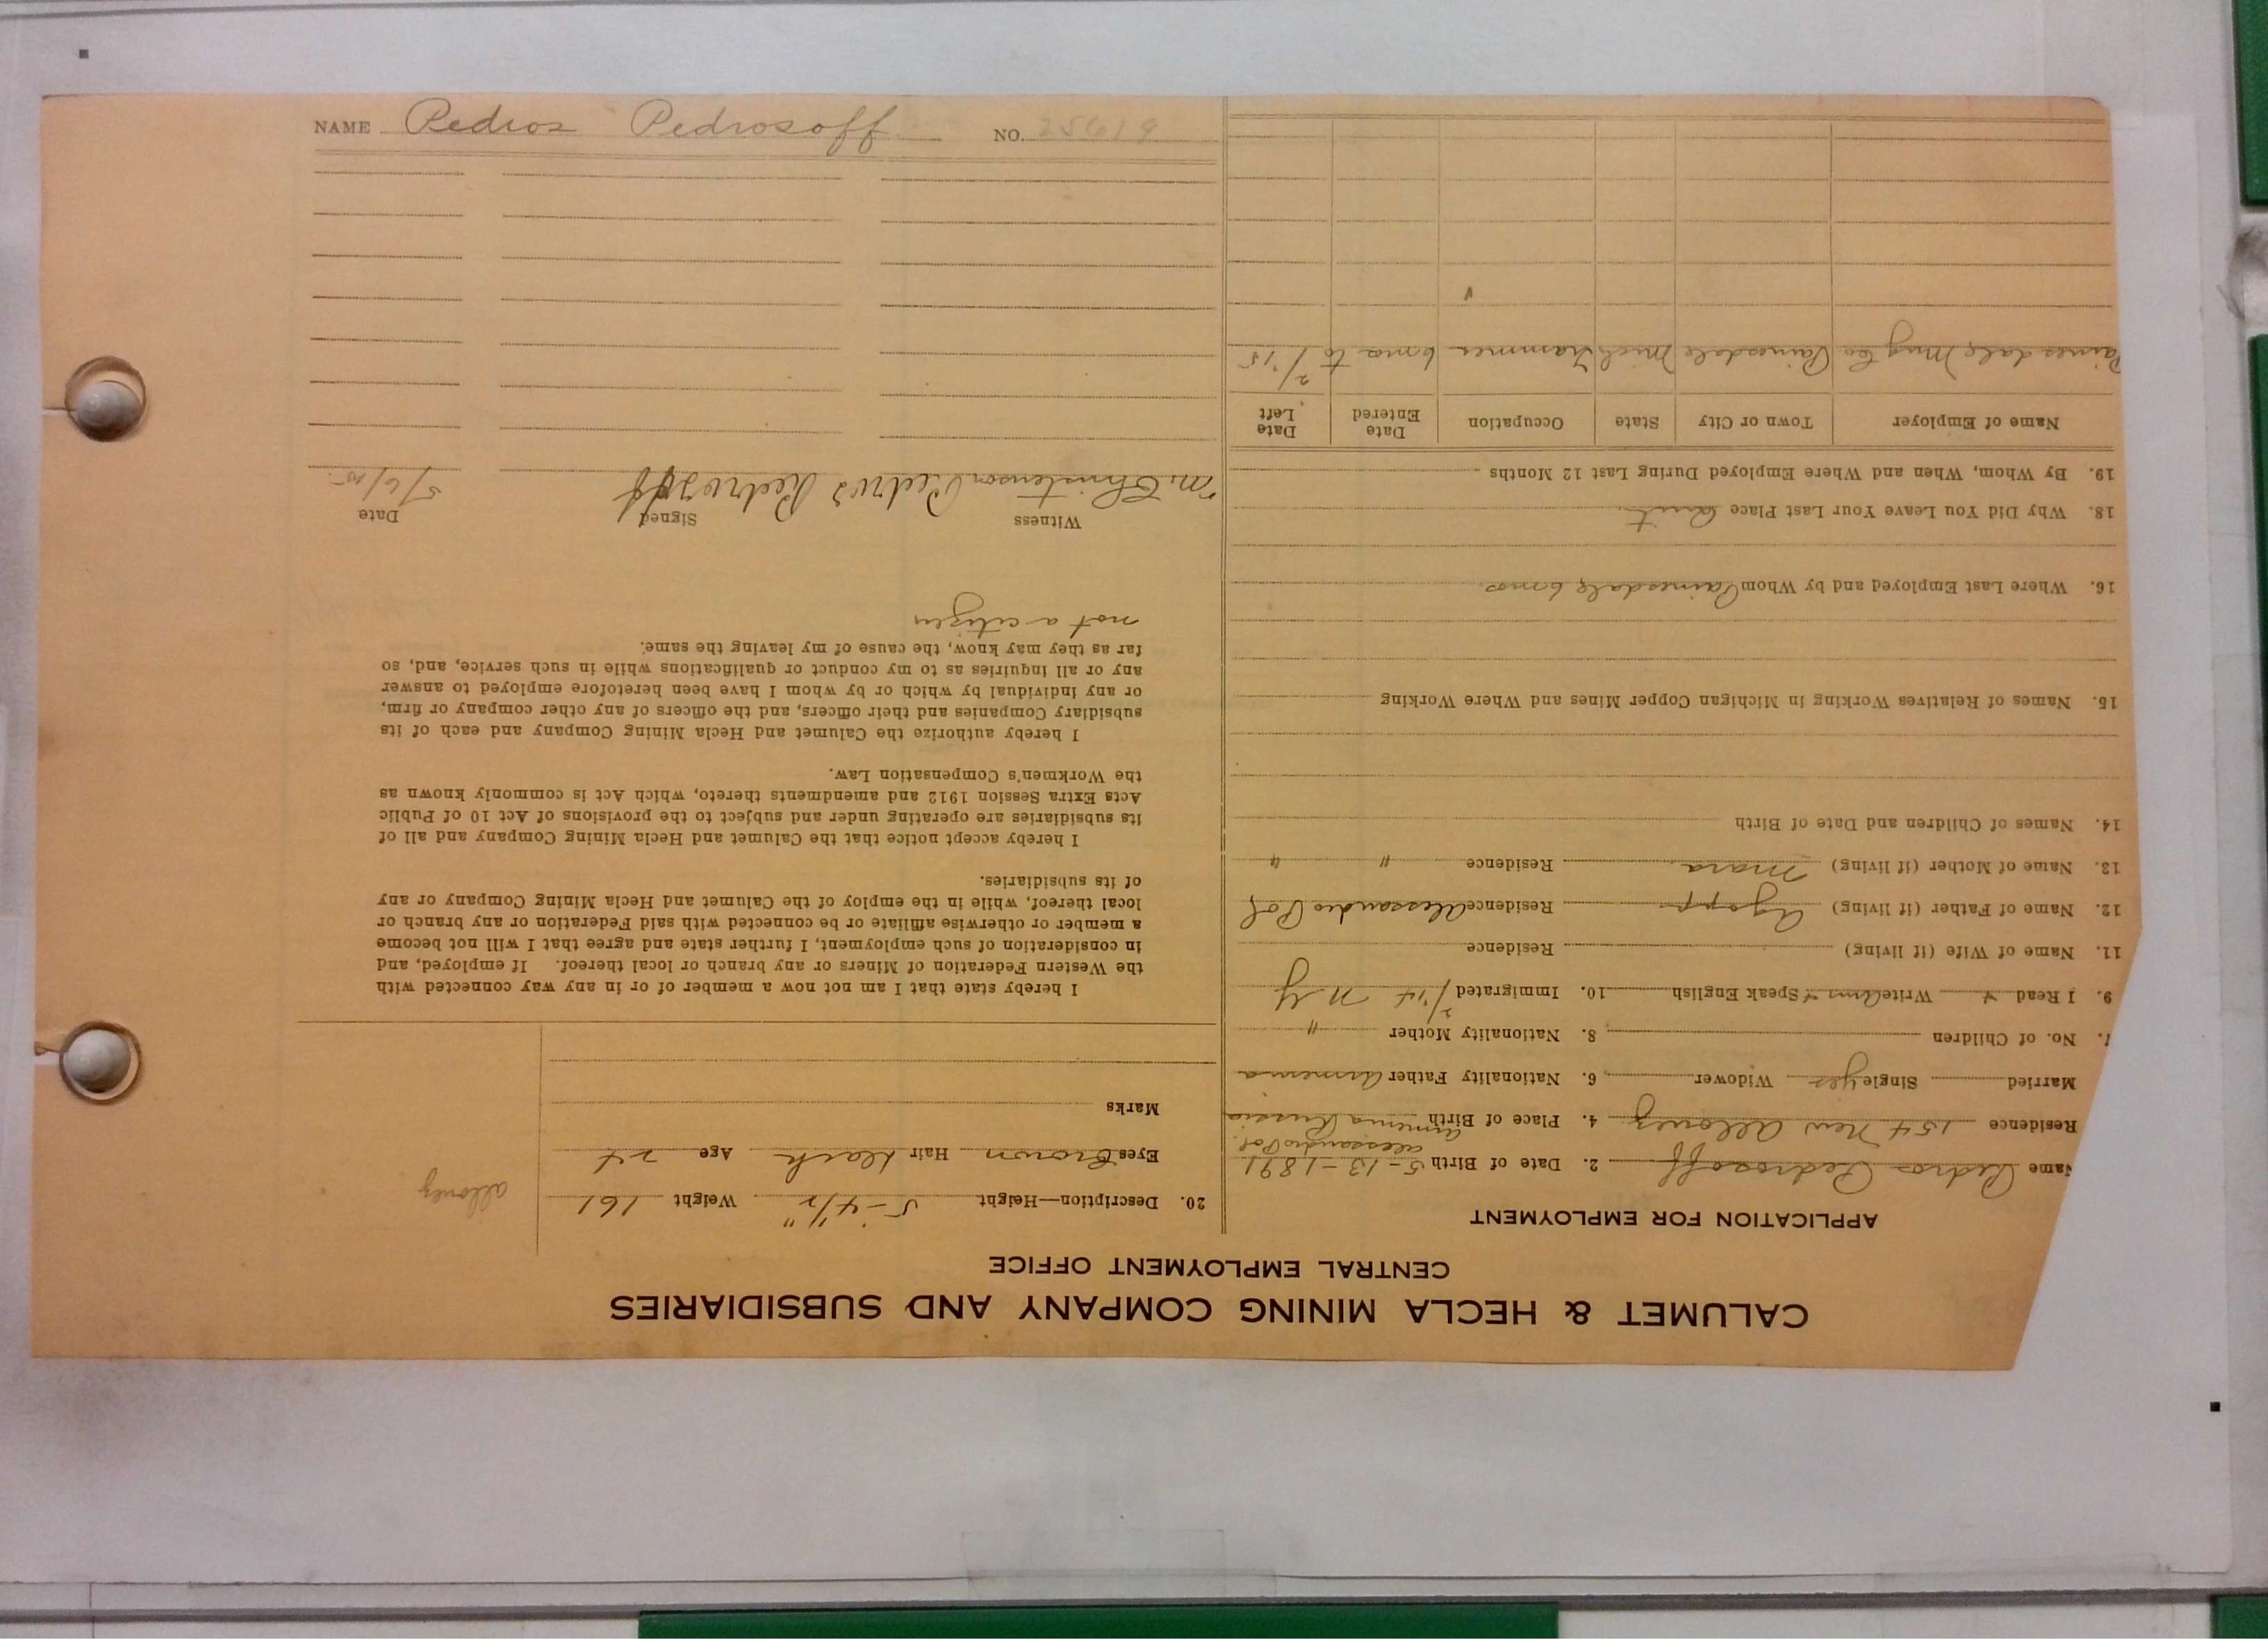 CALUMET & HECLA MINING COMPANY AND SUBSIDIARIES
CENTRAL EMPLOYMENT OFFICE
APPLICATION FOR EMPLOYMENT
Name Pedros Pedrosoff 2. Date of Birth 5-13-1891
Alessandro Pol.
Residence 154 New Allouez 4. Place of Birth Armenia Russia
Married Single yes Widower 6. Nationality Father Armenia
7. No. of Children 8. Nationality Mother "
9. I Read Write Arms Speak English 10. Immigrated 2/'14 N Y
11. Name of Wife (if living) Residence
12. Name of Father (if living) Residence Alessandro Pol
13. Name of Mother (if living) Mara Residence " "
14. Names of Children and Date of Birth
15. Names of Relatives Working in Michigan Copper Mines and Where Working
16. Where Last Employed and by Whom Painesdale 6 mos.
18. Why Did You Leave Your Last Place
19. By Whom, When and Where Employed During Last 12 Months
Name of Employer Town or City State Occupation Date Entered Date Left
Painesdale Mng Co Painesdale Mich Trammer 6 mos to 2/'15
20. Description—Height 5-4 1/2" Weight 161
Allouez
Eyes Brown Hair black Age 24
Marks
I hereby state that I am not now a member of or in any way connected with
the Western Federation of Miners or any branch or local thereof. If employed, and
in consideration of such employment, I further state and agree that I will not become
a member or otherwise affiliate or be connected with said Federation or any branch or
local thereof, while in the employ of the Calumet and Hecla Mining Company or any
of its subsidiaries.
I hereby accept notice that the Calumet and Hecla Mining Company and all of
its subsidiaries are operating under and subject to the provisions of Act 10 of Public
Acts Extra Session 1912 and amendments thereto, which Act is commonly known as
the Workmen's Compensation Law.
I hereby authorize the Calumet and Hecla Mining Company and each of its
subsidiary Companies and their officers, and the officers of any other company or firm,
or any individual by which or by whom I have been heretofore employed to answer
any or all inquiries as to my conduct or qualifications while in such service, and, so
far as they may know, the cause of my leaving the same.
not a citizen
Witness Signed Date
M. Christenson Pedros Pedrosoff 5/6/15.
NAME Pedros Pedrosoff NO. 25619